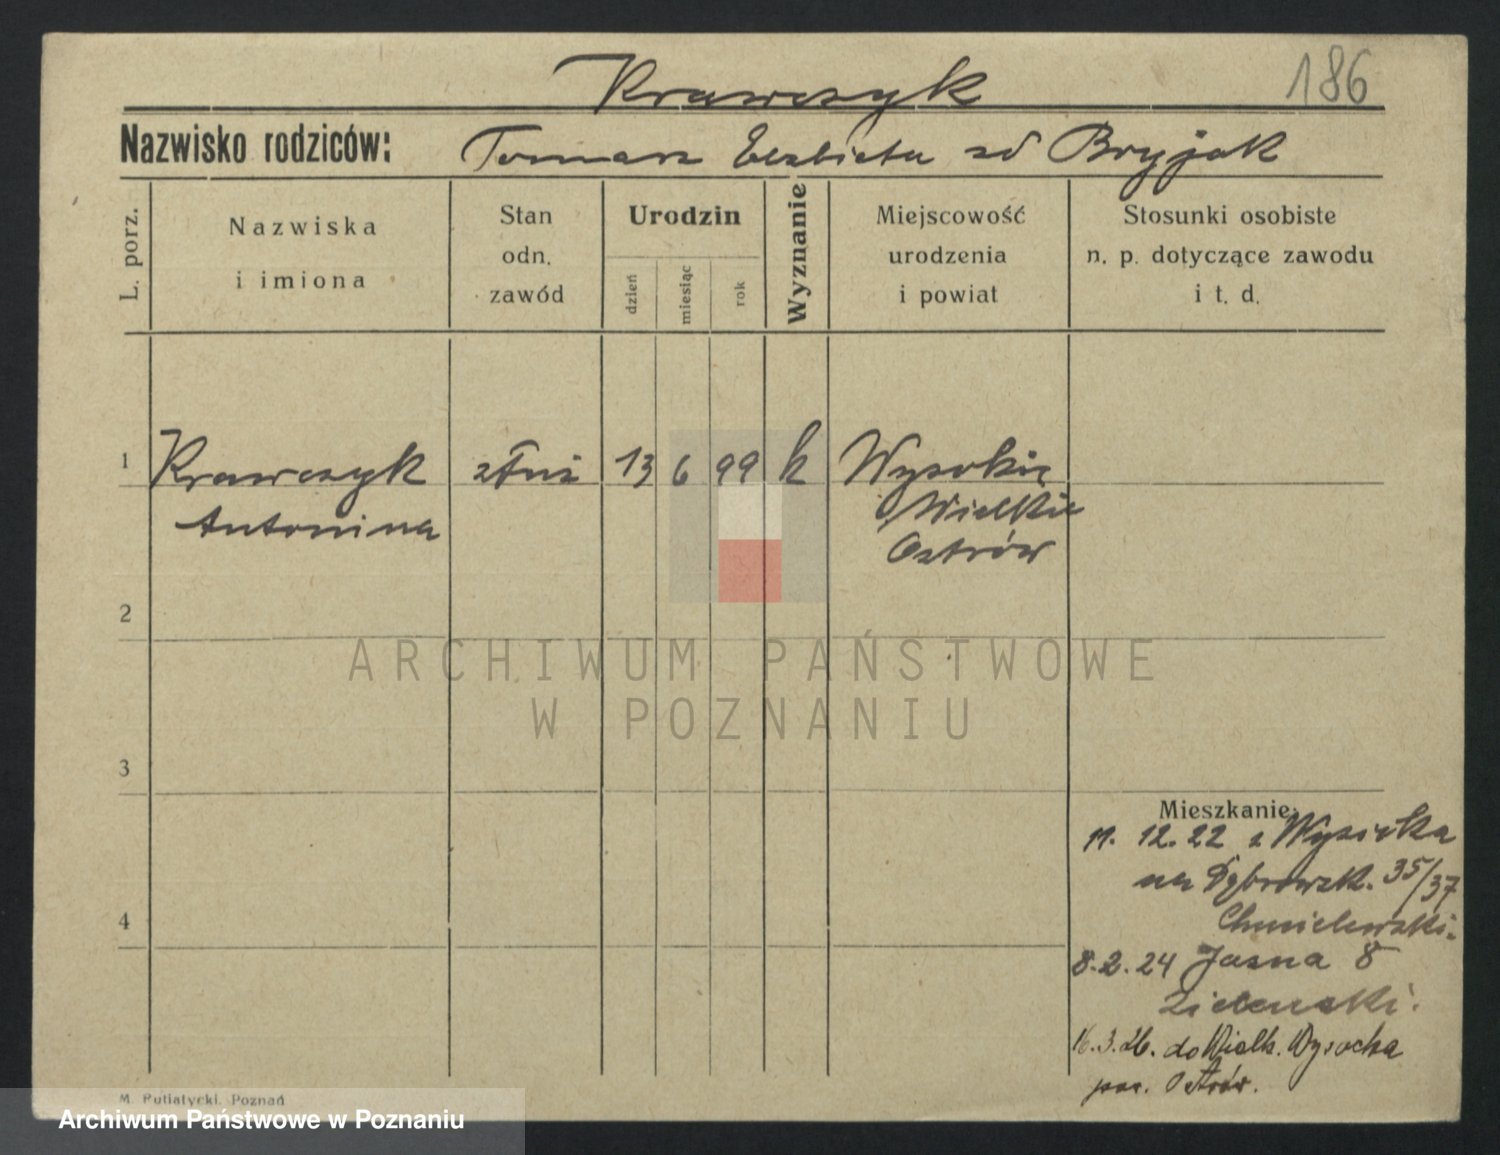 186
Krawczyk
Nazwisko rodziców: Tomasz Elżbieta zd Bryjak
L. porz.
Nazwiska
i imiona
Stan
odn.
zawód
Urodzin
dzień
miesiąc
rok
Wyznanie
Miejscowość
urodzenia
i powiat
Stosunki osobiste
n. p. dotyczące zawodu
i t. d.
1 Krawczyk 13 6 99 k Wysokie
Antonina Wielkie
Ostrów
2
ARCHIWUM PAŃSTWOWE
W POZNANIU
3
Mieszkanie:
11. 12. 22 z Wysocka
na Dąbrowsk. 35/37
4
Chmielewski.
8. 2. 24 Jasna 8
Zielenski.
16. 3. 26. do Wielk. Wysocka
pow. Ostrów.
M. Putiatycki. Poznań
Archiwum Państwowe w Poznaniu